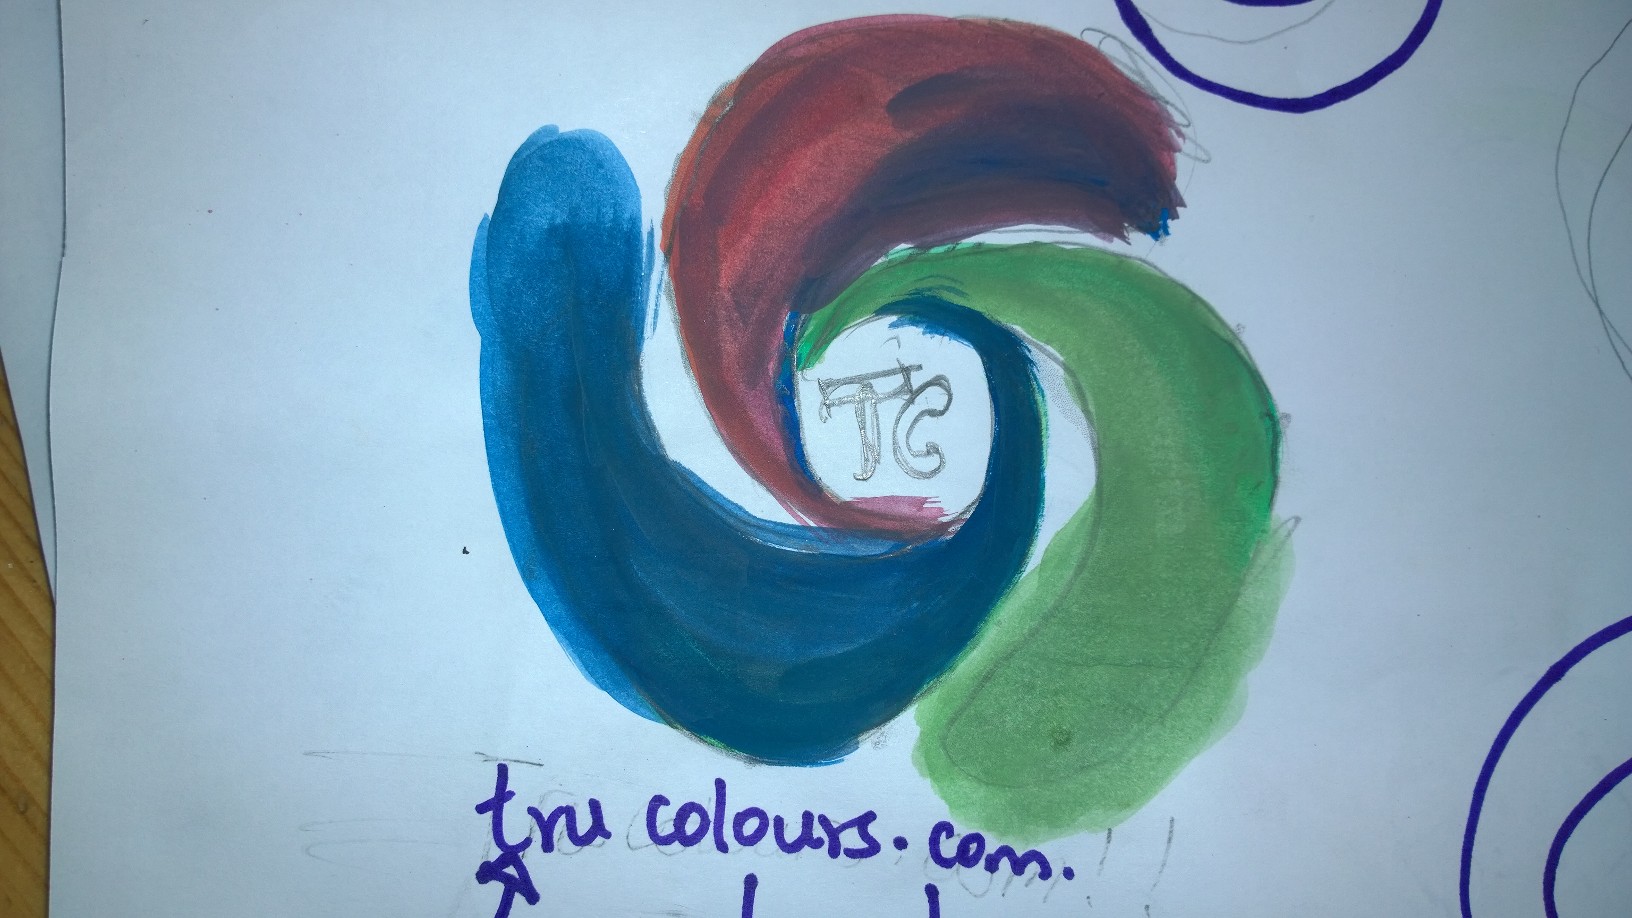 TC
tru colours.com.